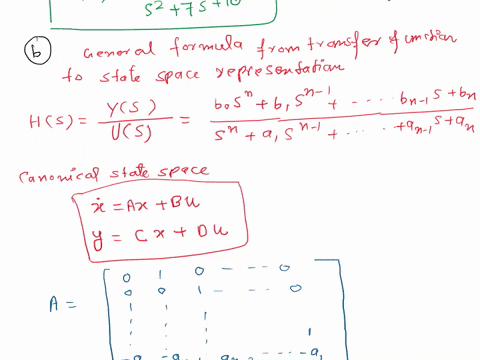 s² + 7s + 10
(b) General formula from transfer function
to state space representation
H(s) = Y(s) / U(s) = b₀sⁿ + b₁sⁿ⁻¹ + ---- bₙ₋₁s + bₙ / sⁿ + a₁sⁿ⁻¹ + ..... + aₙ₋₁s + aₙ
Canonical state space
ẋ = Ax + Bu
y = Cx + Du
0 1 0 - - - 0
0 0 1 - - - 0
A =
1